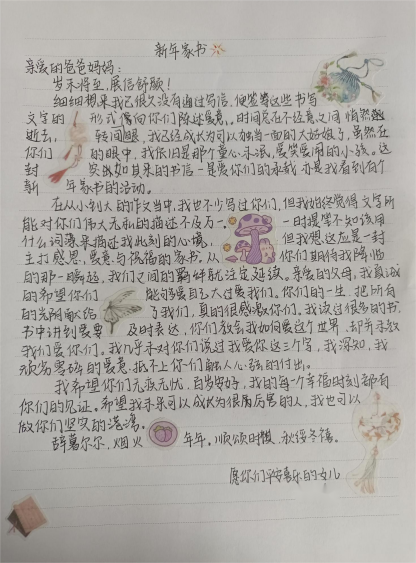 新年家书
亲爱的爸爸妈妈：
岁末将至，展信舒颜！
细细想来我已很久没有通过写信，便签等这些书写
文字的形式偏向你们陈述爱意。时间总在不经意之间悄然
逝去，转间眼，我已经成长为可以独当一面的大好姐了，虽然在
你们的眼中，我依旧是那个童心未泯，爱笑爱闹的小孩。这
封突出如其来的书信一是爱你们的承载，亦是我看到有个
新年家书的活动。
在从小到大的作文当中，我也不少写过你们，但我始终觉得文字所
能对你们伟大无私的描述不及万一。一时提笔不知该用
什么词藻来描述我此刻的心境，但我想这应是一封
主打感恩，爱意与祝福的家书。从你们期待我降临
的那一瞬起，我们之间的羁绊就注定延续。亲爱的父母，我真诚
的希望你们能够爱自己大过爱我们。你们的一生，把所有
的光阴献给了我们，真的很感激你们。我读过很多的书，
书中讲到爱要及时表达，你们教会我如何爱这个世界，却并未教
我们爱你们。我几乎未对你们说过我爱你这三个字，我深知，我
琐碎的爱意，抵不上你们触人心弦的付出。
我希望你们无疾无忧，自当安好，我的每一个幸福时刻都有
你们的见证。希望我未来可以成长为很厉害的人，我也可以
做你们坚实的港湾。
辞暮尔尔，烟火年年。顺颂时祺，秋绥冬禧。
愿你们平安喜乐的女儿